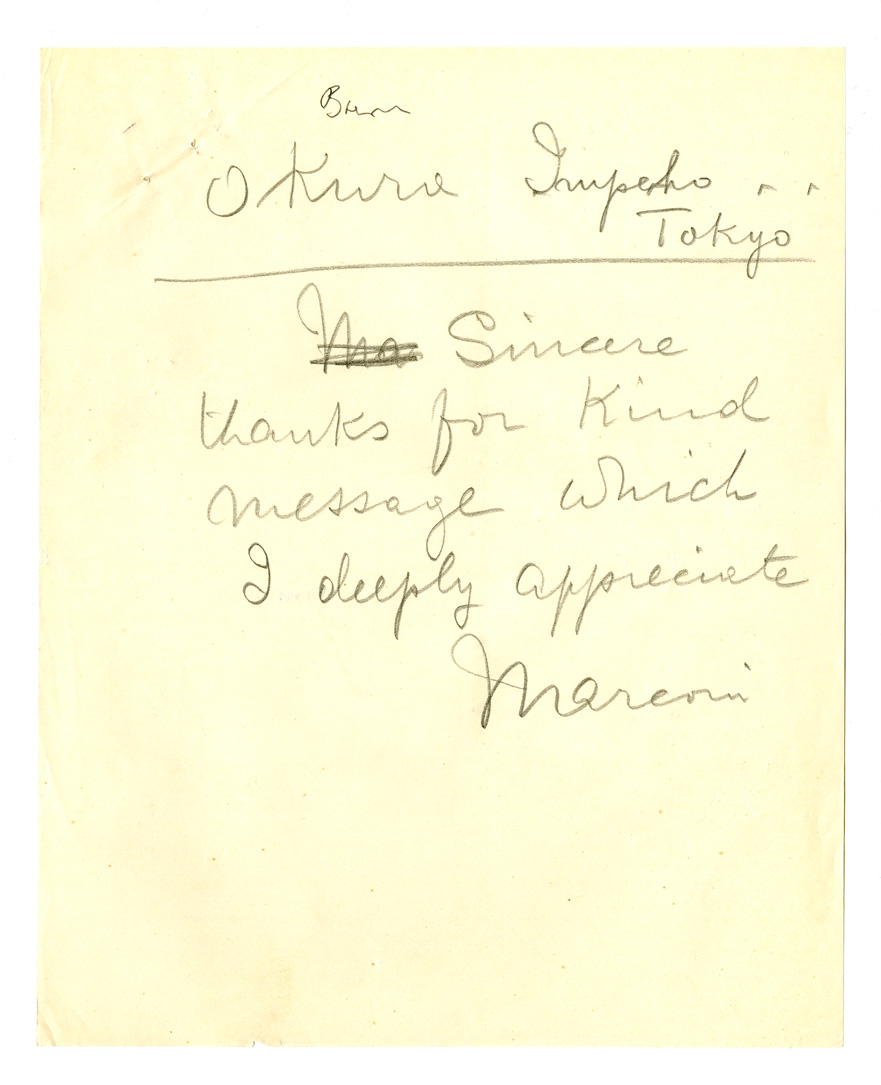 Okura Impeho " "
Tokyo
Ma Sincere
thanks for Kind
message which
I deeply appreciate
Marconi